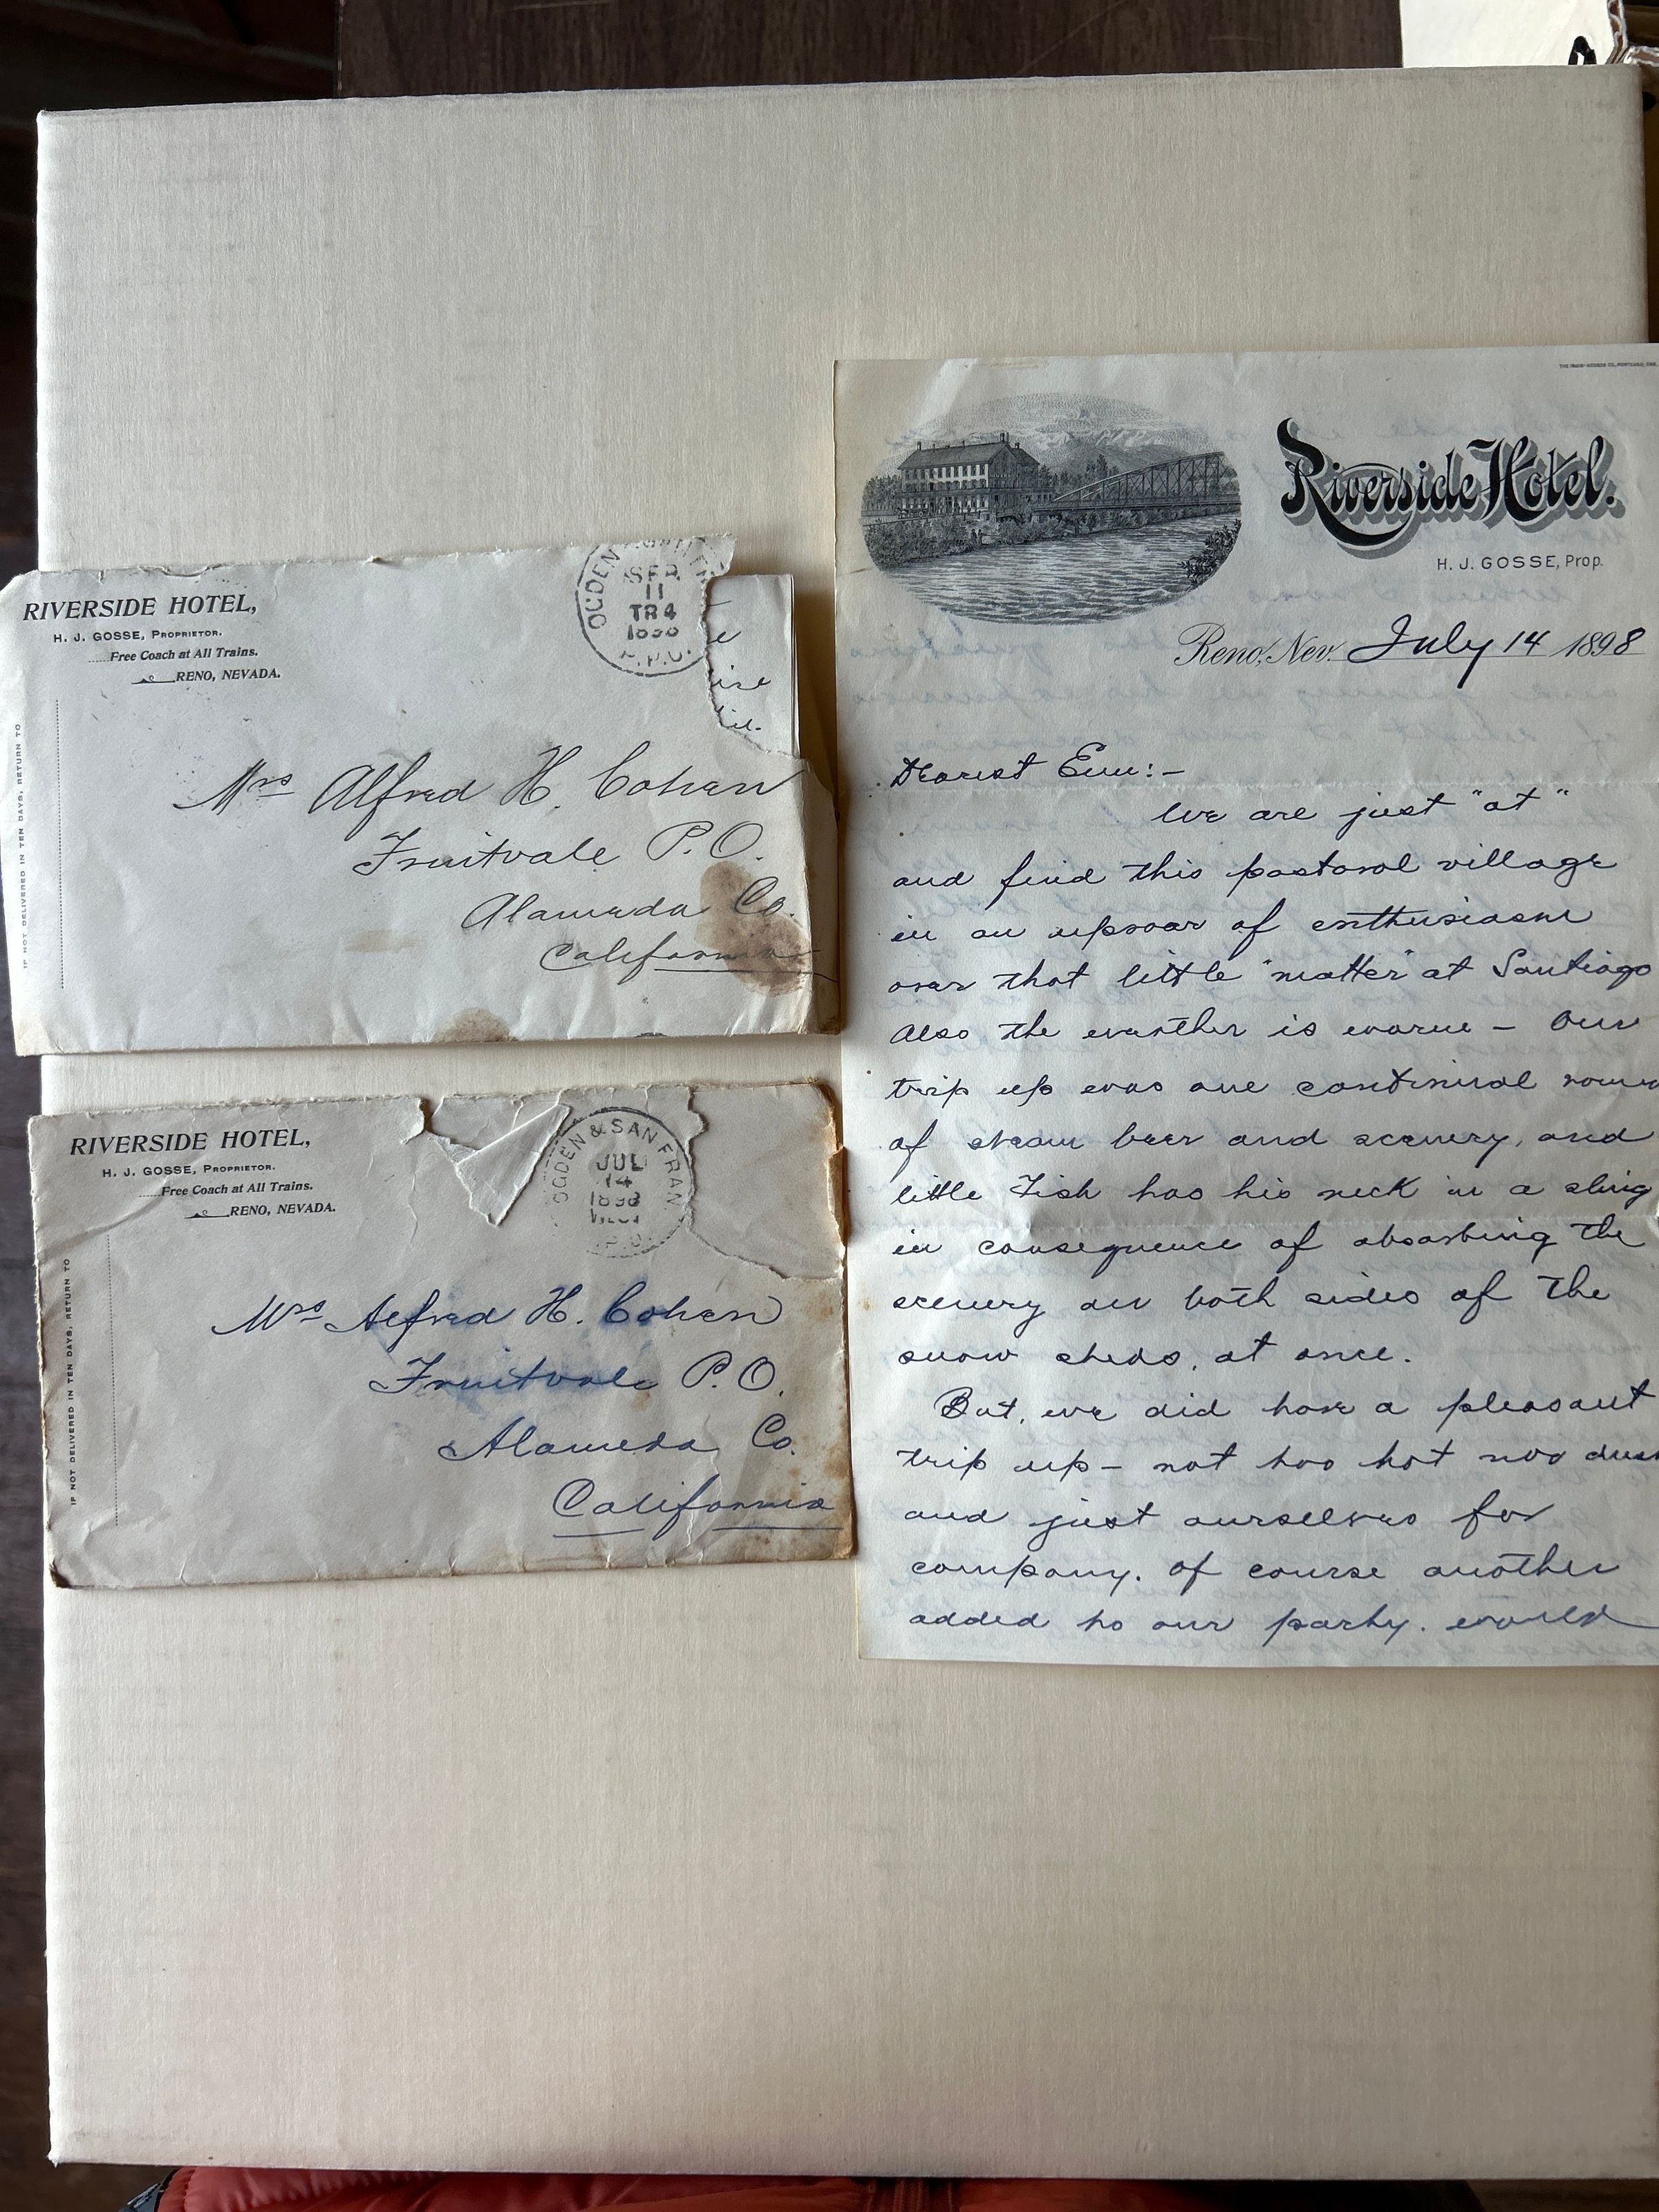 RIVERSIDE HOTEL,
H. J. GOSSE, PROPRIETOR.
Free Coach at All Trains.
RENO, NEVADA.
IF NOT DELIVERED IN TEN DAYS, RETURN TO
OGDEN
SEP
11
TR 4
R.P.O.
Mrs Alfred H. Cohen
Fruitvale P.O.
Alameda Co.
California
RIVERSIDE HOTEL,
H. J. GOSSE, PROPRIETOR.
Free Coach at All Trains.
RENO, NEVADA.
IF NOT DELIVERED IN TEN DAYS, RETURN TO
OGDEN & SAN FRAN
JUL
14
1898
Mrs Alfred H. Cohen
Fruitvale P.O.
Alameda Co.
California
Riverside Hotel.
H. J. GOSSE, Prop.
Reno, Nev. July 14 1898
Dearest Em:-
We are just "at"
and find this pastoral village
in an uproar of enthusiasm
over that little "matter" at Santiago
Also the weather is warm - Our
trip up was one continual
of steam beer and scenery, and
little Fish has his neck in a sling
in consequence of absorbing the
scenery on both sides of the
snow sheds, at once.
But, we did have a pleasant
trip up - not too hot nor
and just ourselves for
company. Of course another
added to our party. would